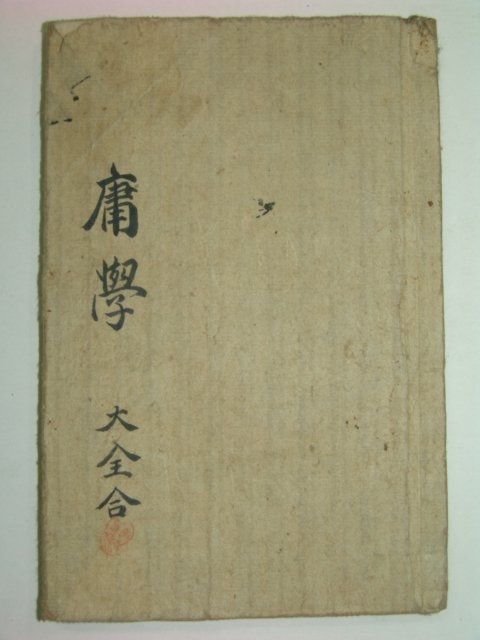 庸學 大全合